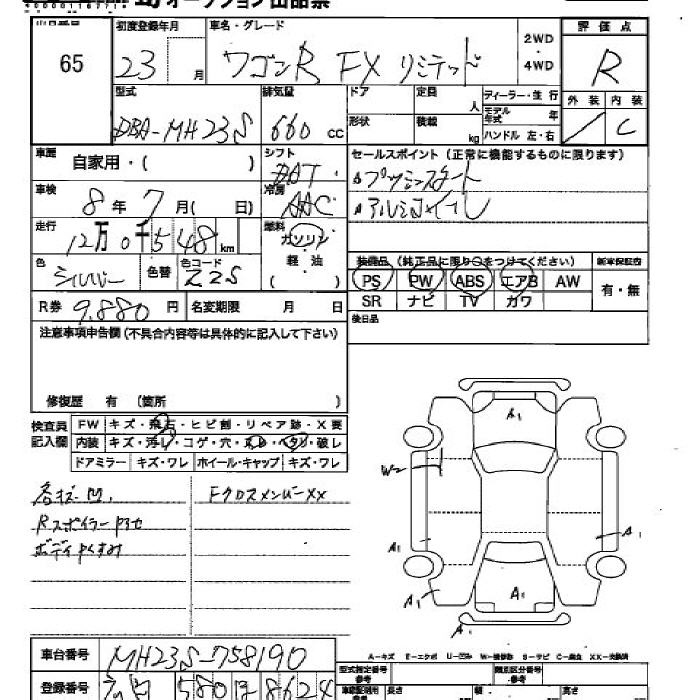 オークション出品票
出品番号 初度登録年月 車名・グレード 評価点
65 23 月 ワゴンR FX リミテッド 2WD・4WD R
型式 排気量 ドア 定員 人 ディーラー・並行 外装 内装
DBA-MH23S 660 cc 形状 積載 kg モデル年式 年 ハンドル 左・右 / C
車歴 自家用・( ) シフト セールスポイント(正常に機能するものに限ります)
車検 8年 7月( 日) 冷房 AAC プッシュスタート
アルミホイル
走行 12万0千548km 燃料 ガソリン 軽油
色 シルバー 色替 色コード Z2S
装備品(純正品に限り○をつけてください) 新車保証書
PS PW ABS エアB AW 有・無
SR ナビ TV カワ
R券 9.880円 名変期限 月 日 後日品
注意事項申告欄(不具合内容等は具体的に記入して下さい)
修復歴 有 (箇所 )
検査員記入欄 FW キズ・飛石・ヒビ割・リペア跡・X要
内装 キズ・汚レ・コゲ・穴・スレ・ヘタリ・破レ
ドアミラー キズ・ワレ ホイール・キャップ キズ・ワレ
各キズ凹. FクロスメンバーXX
Rスポイラー
ボディ
A1
W2
A1
A1
A1
A1
A1
A-キズ E-エクボ U-凹み W-補修跡 S-サビ C-腐食 XX-交換済
車台番号 MH23S-758190
登録番号 580 8624
型式指定番号 参考 類別区分番号 参考
長さ 幅 高さ